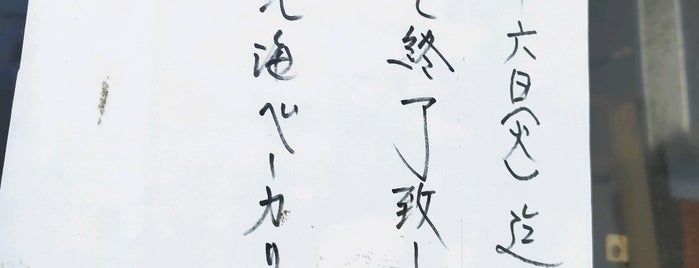 六日(火)迄
終了致し
海ベーカリ